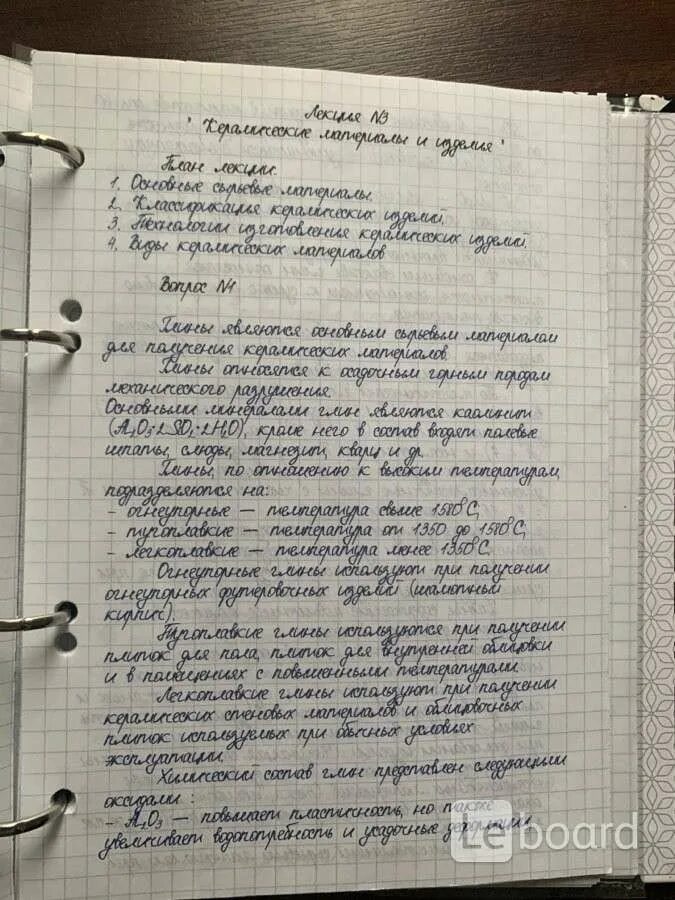 Лекция №3
"Керамические материалы и изделия"
План лекции.
1. Основные сырьевые материалы.
2. Классификация керамических изделий.
3. Технологии изготовления керамических изделий.
4. Виды керамических материалов
Вопрос №1
Глины являются основным сырьевым материалом
для получения керамических материалов.
Глины относятся к осадочным горным породам
механического разрушения.
Основными минералами глин являются каолинит
(Al₂O₃·2SiO₂·2H₂O), кроме него в состав входят полевые
шпаты, слюды, магнезит, кварц и др.
Глины, по отношению к высоким температурам,
подразделяются на:
- огнеупорные — температура свыше 1580°С;
- тугоплавкие — температура от 1350 до 1580°С;
- легкоплавкие — температура менее 1350°С.
Огнеупорные глины используют при получении
огнеупорных футеровочных изделий (шамотный
кирпич).
Тугоплавкие глины используются при получении
плиток для пола, плиток для внутренней облицовки
и в помещениях с повышенными температурами.
Легкоплавкие глины используют при получении
керамических стеновых материалов и облицовочных
плиток используемых при обычных условиях
эксплуатации.
Химический состав глин представлен следующими
оксидами:
- Al₂O₃ — повышает пластичность, но также
увеличивает водопотребность и усадочные деформации,
Leboard